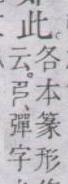 此。
各本篆形
云。、彈字